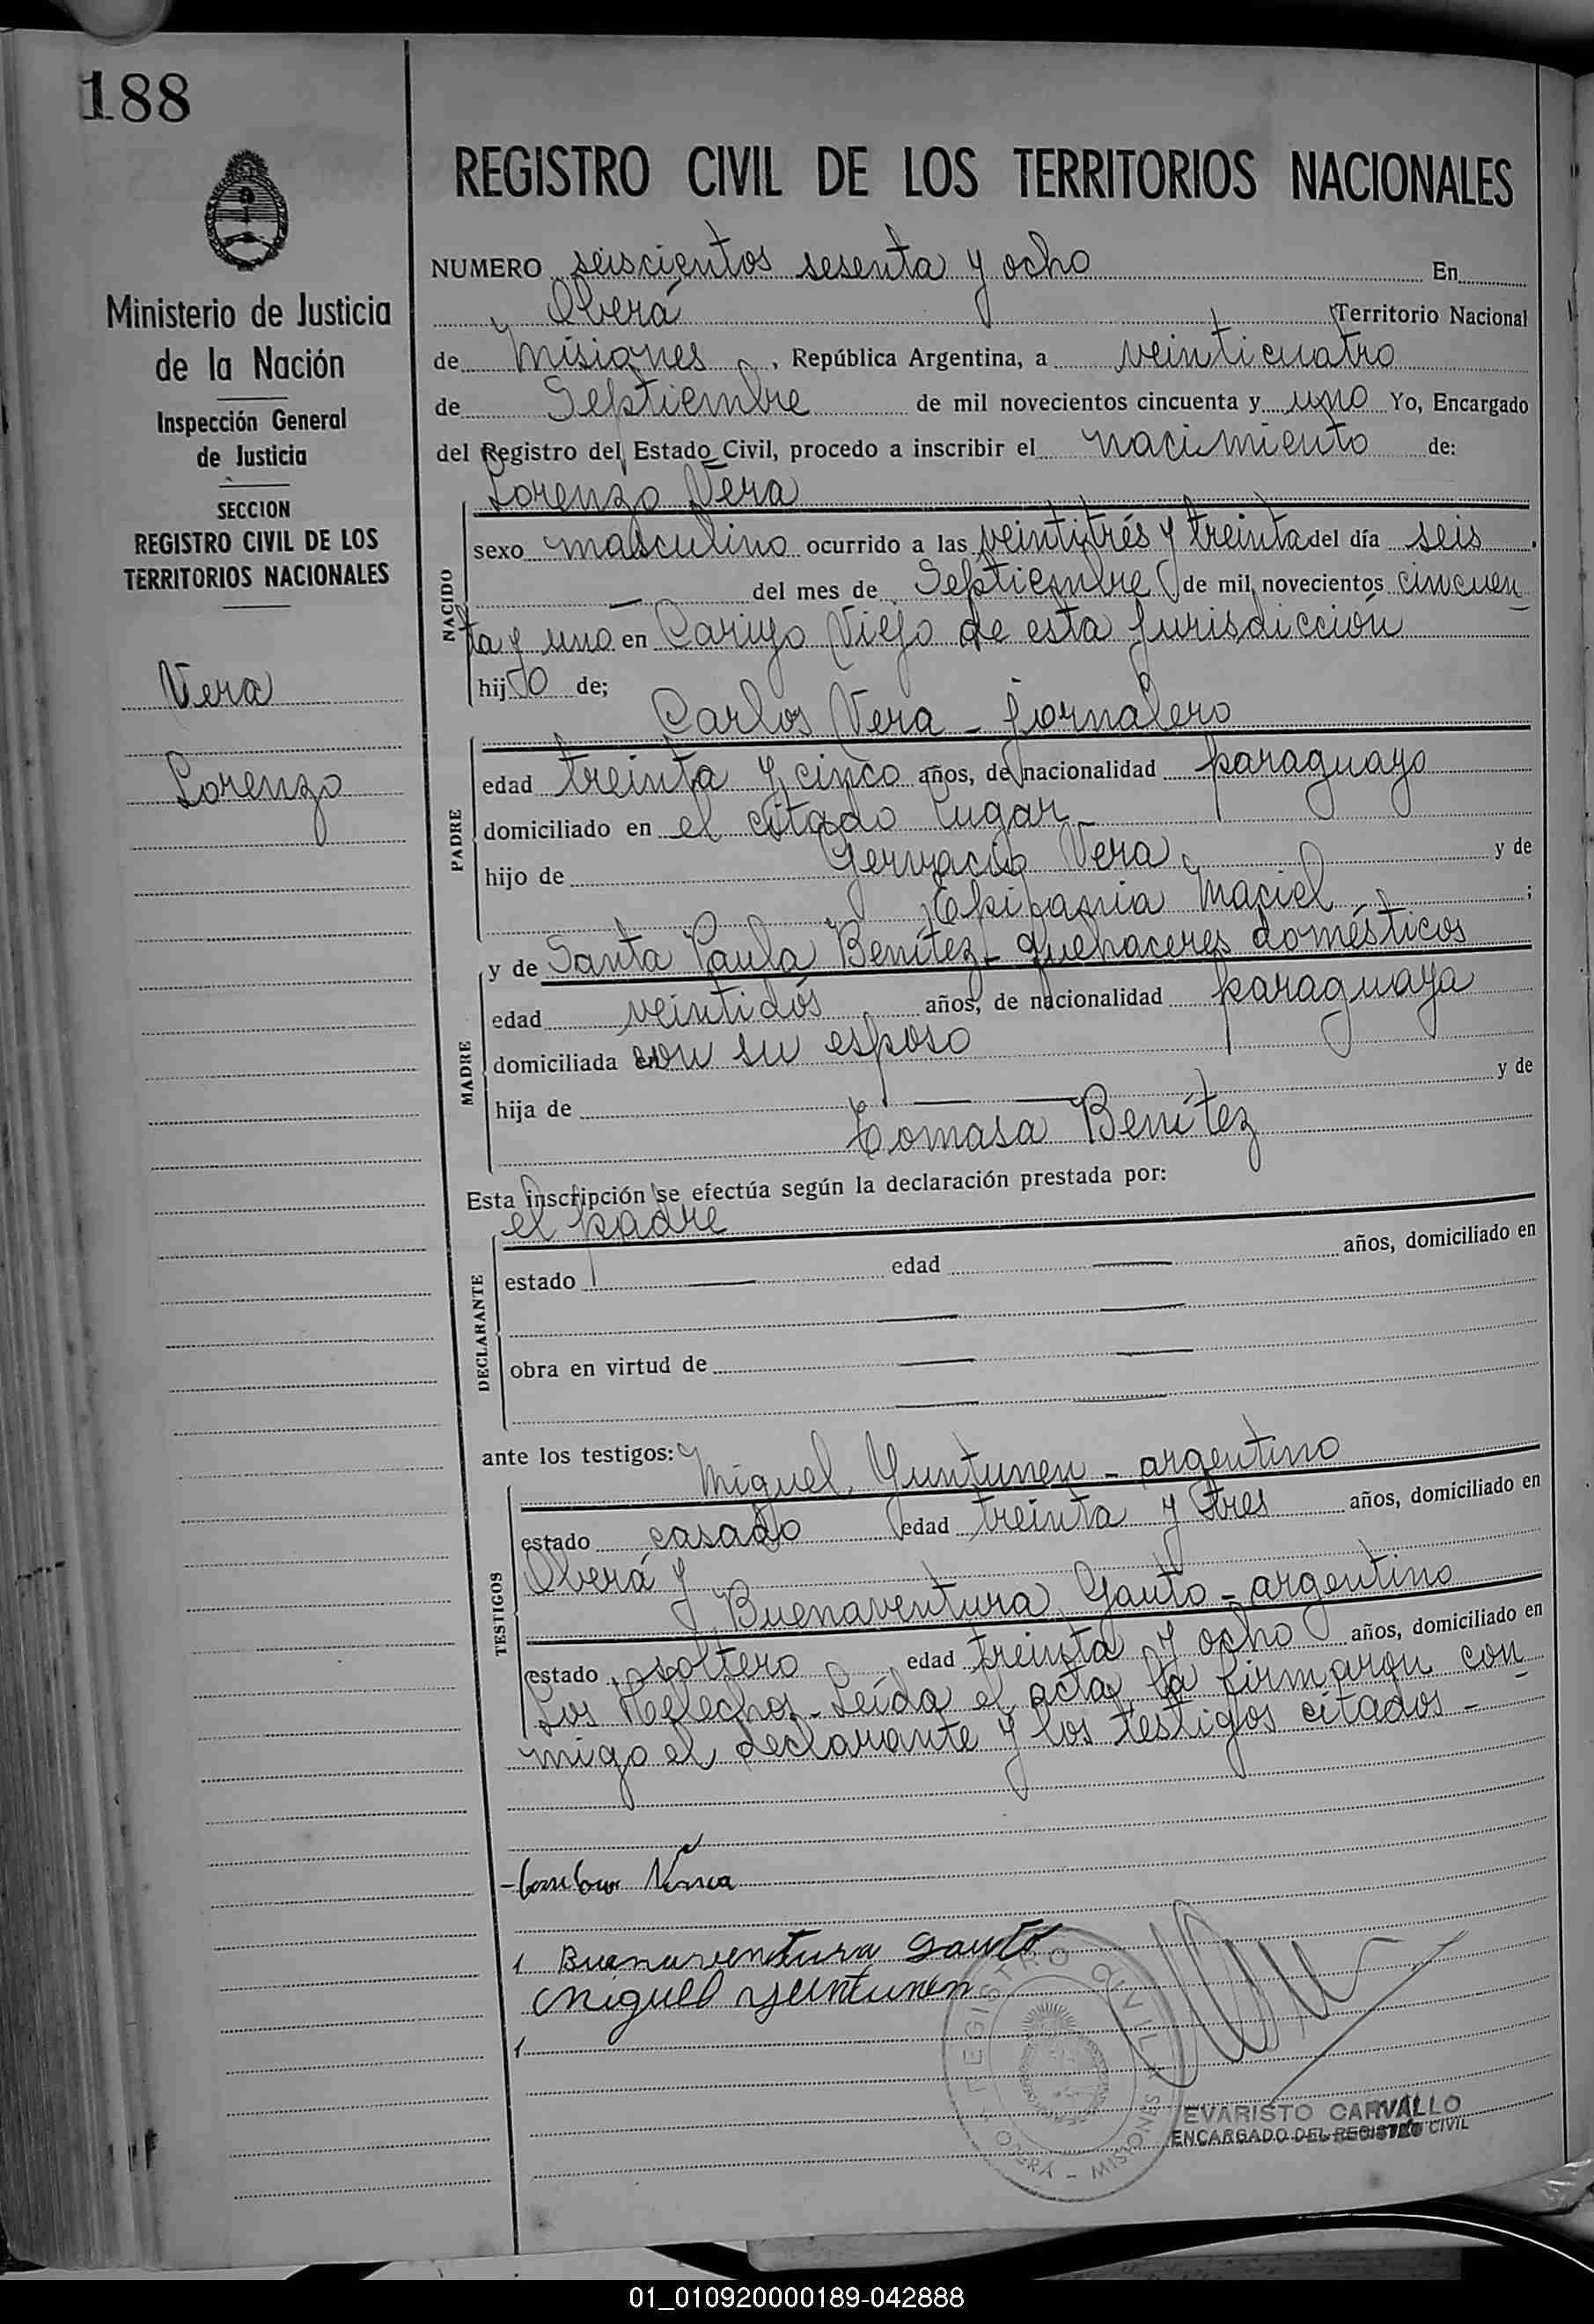 188
Ministerio de Justicia
de la Nación
Inspección General
de Justicia
SECCION
REGISTRO CIVIL DE LOS
TERRITORIOS NACIONALES
Vera
Lorenzo
REGISTRO CIVIL DE LOS TERRITORIOS NACIONALES
NUMERO seiscientos sesenta y ocho En
Oberá Territorio Nacional
de Misiones, República Argentina, a veinticuatro
de Septiembre de mil novecientos cincuenta y uno Yo, Encargado
del Registro del Estado Civil, procedo a inscribir el nacimiento de:
Lorenzo Vera
NACIDO
sexo masculino ocurrido a las veintitrés y treinta del día seis
— del mes de Septiembre de mil novecientos cincuen
ta y uno en Viejo de esta jurisdicción
hijo de;
Carlos Vera - jornalero
PADRE
edad treinta y cinco años, de nacionalidad paraguayo
domiciliado en el citado lugar -
hijo de Gervacio Vera y de
Epifania Maciel ;
MADRE
y de Santa Paula Benítez - quehaceres domésticos
edad veintidós años, de nacionalidad paraguaya
domiciliada con su esposo
hija de — — y de
Tomasa Benítez
Esta inscripción se efectúa según la declaración prestada por:
el padre
DECLARANTE
estado — edad — años, domiciliado en
— —
obra en virtud de — —
— —
ante los testigos:
Miguel Yuntunen - argentino
TESTIGOS
estado casado edad treinta y tres años, domiciliado en
Oberá y
Buenaventura Gauto - argentino
estado soltero edad treinta y ocho años, domiciliado en
Los Helechos - Leída el acta, la firmaron con
migo el declarante y los testigos citados -
Buenaventura Gauto
Miguel Yuntunen
REGISTRO CIVIL
OBERÁ - MISIONES
EVARISTO CARVALLO
ENCARGADO DEL REGISTRO CIVIL
01_010920000189-042888